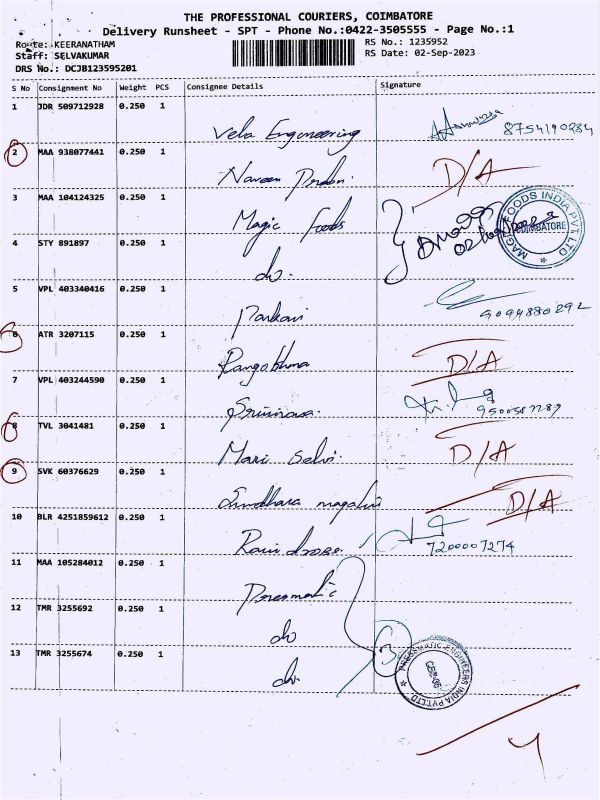 THE PROFESSIONAL COURIERS, COIMBATORE
Delivery Runsheet - SPT - Phone No.:0422-3505555 - Page No.:1
Route: KEERANATHAM
RS No.: 1235952
Staff: SELVAKUMAR
RS Date: 02-Sep-2023
DRS No.: DCJB123595201
S No Consignment No Weight PCS Consignee Details Signature
1 JDR 509712928 0.250 1
Vela Engineering 8754190284
2 MAA 938077441 0.250 1
Naveen D/A
3 MAA 104124325 0.250 1
Magic Foods
MAGIC FOODS INDIA PVT LTD COIMBATORE
4 STY 891897 0.250 1
do.
5 VPL 403340416 0.250 1
9094880292
6 ATR 3207115 0.250 1
D/A
7 VPL 403244590 0.250 1
Srinivasa.
8 TVL 3041481 0.250 1
Mari Selvi D/A
9 SVK 60376629 0.250 1
D/A
10 BLR 4251859612 0.250 1
7200007274
11 MAA 105284012 0.250 1
12 TMR 3255692 0.250 1
do
13 TMR 3255674 0.250 1
do. 3
PRESSMATIC ENGINEERS INDIA PVT LTD CBE-35
4